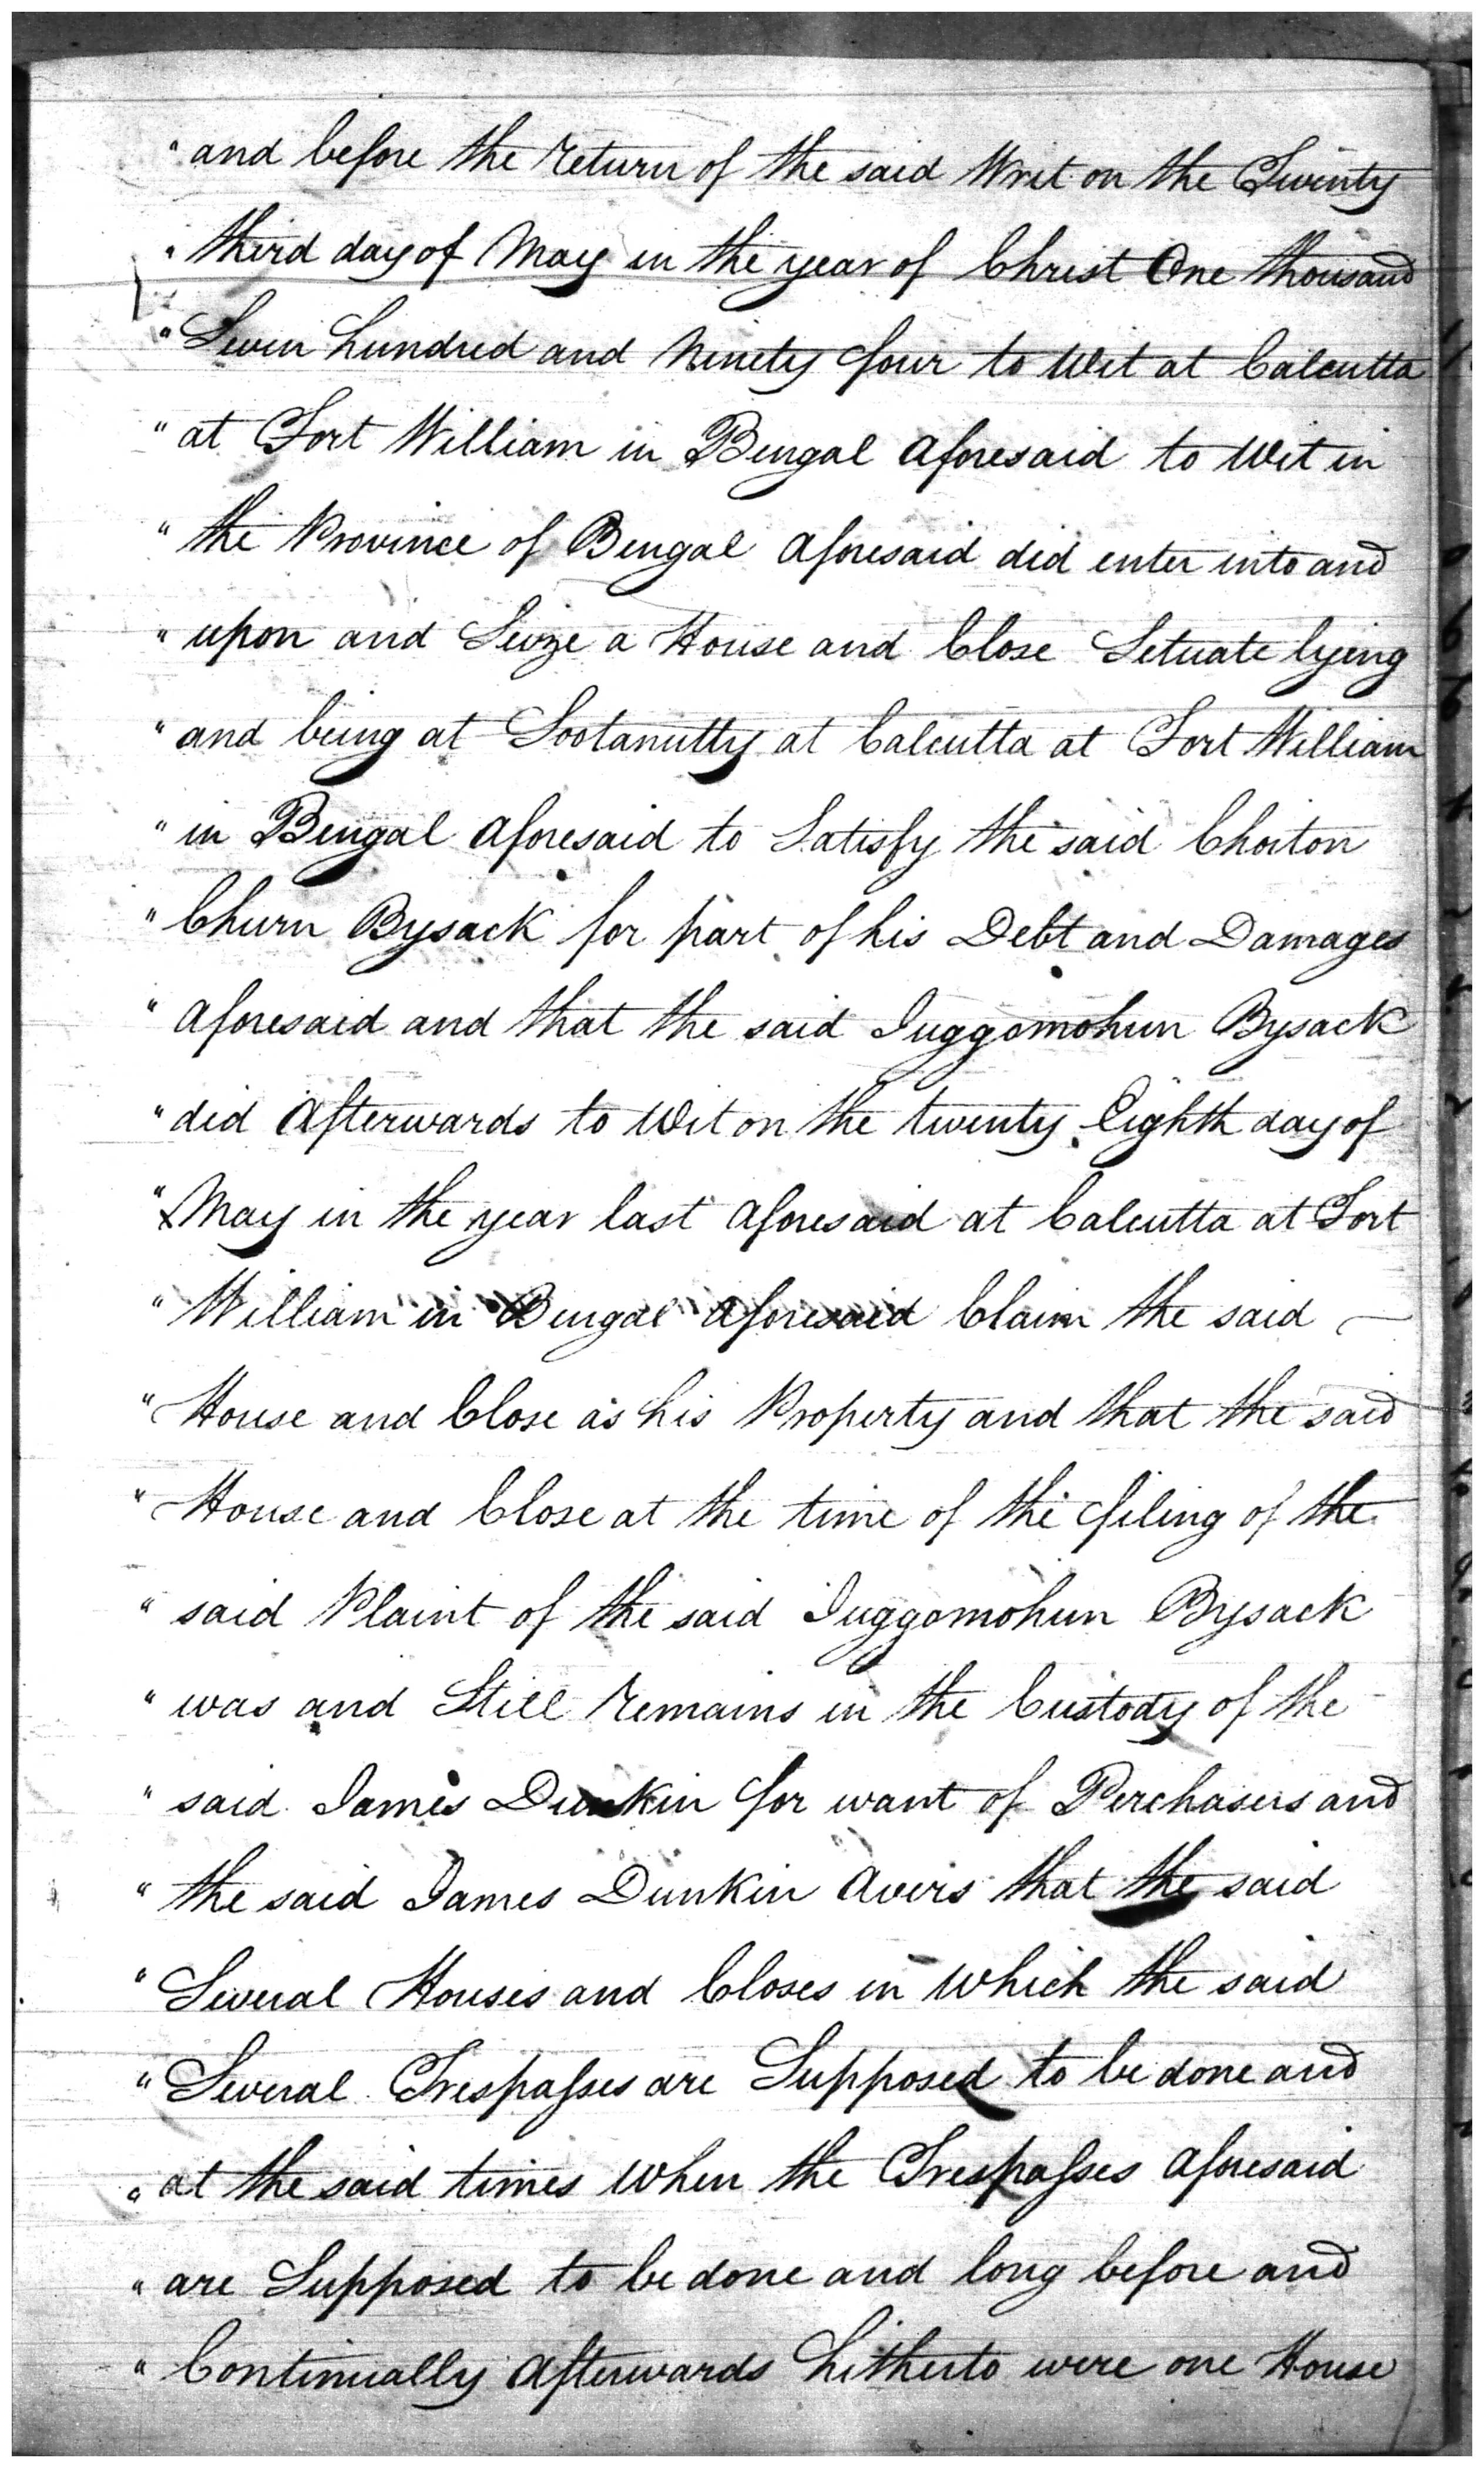 " and before the return of the said Writ on the Twenty
" third day of May in the year of Christ One thousand
" Seven hundred and Ninety four to Wit at Calcutta
" at Fort William in Bengal aforesaid to Wit in
" the Province of Bengal aforesaid did enter into and
" upon and Seize a House and Close Situate lying
" and being at Sootanutty at Calcutta at Fort William
" in Bengal aforesaid to Satisfy the said Choiton
" Churn Bysack for part of his Debt and Damages
" aforesaid and that the said Juggomohun Bysack
" did afterwards to Wit on the twenty Eighth day of
" May in the year last aforesaid at Calcutta at Fort
" William in Bengal aforesaid Claim the said
" House and Close as his Property and that the said
" House and Close at the time of the filing of the
" said Plaint of the said Juggomohun Bysack
" was and Still remains in the Custody of the
" said James Dunkin for want of Perchasers and
" the said James Dunkin avers that the said
" Several Houses and Closes in which the said
" Several Trespasses are Supposed to be done and
" at the said times when the Trespasses aforesaid
" are Supposed to be done and long before and
" Continually afterwards hitherto were one House